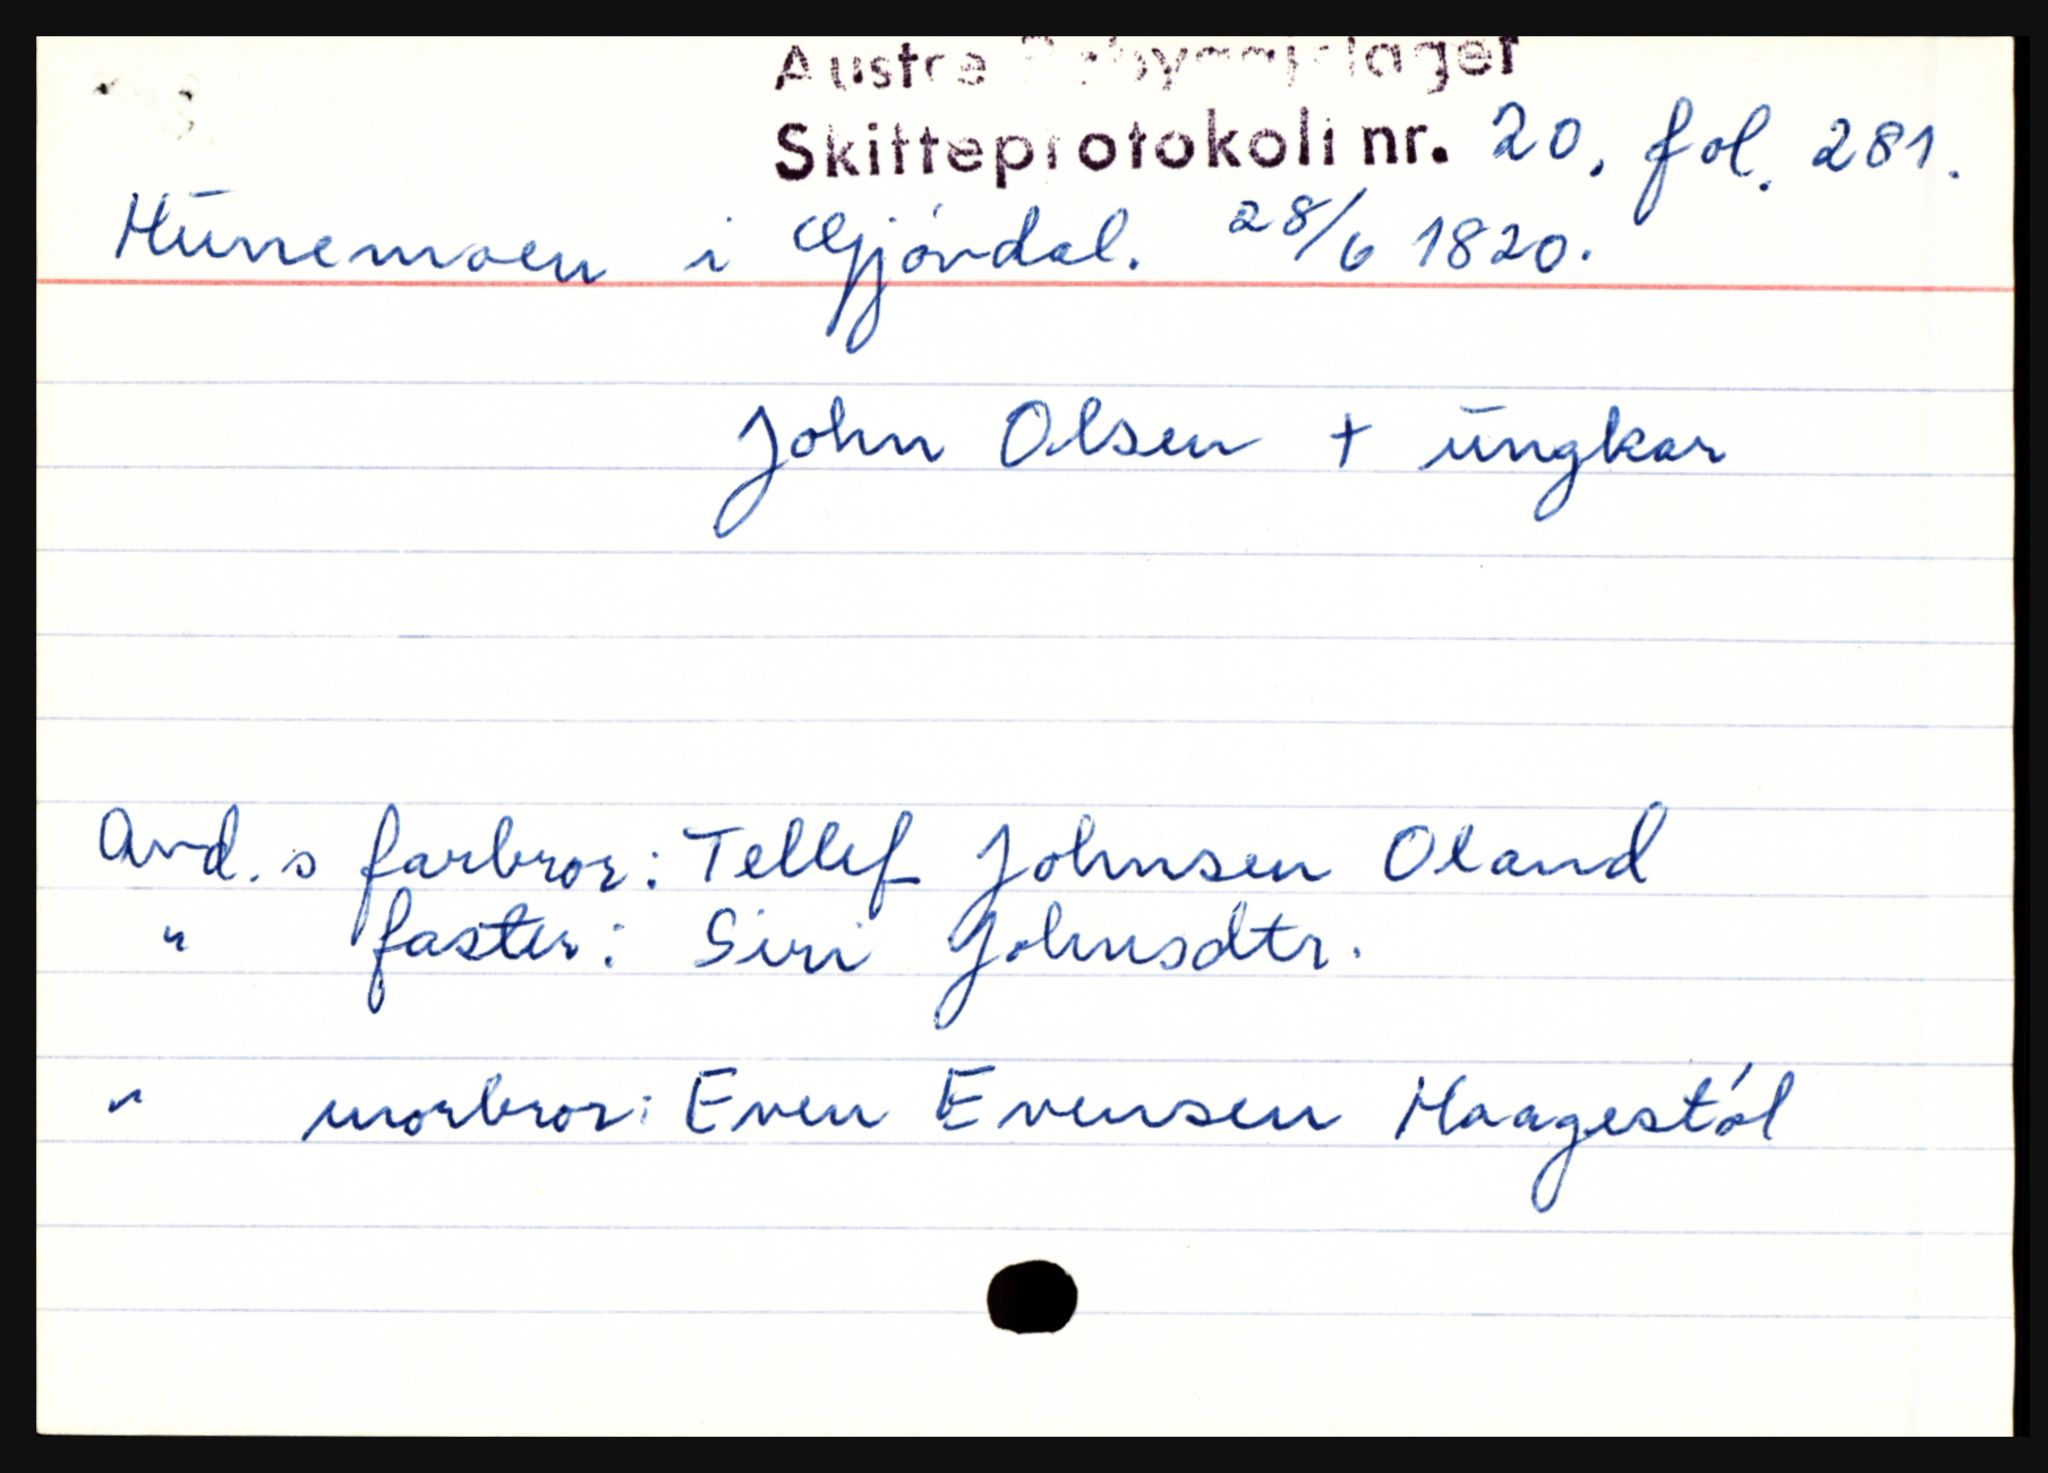 Austre
Skifteprotokoll nr. 20, fol. 281.
Hūnemoen i Gjóvdal. 28/6 1820.
John Olsen + ūngkar
Avd. s farbror: Tellef Johnsen Oland
" faster: Siri Johnsdtr.
" morbror: Even Evensen Haagestól